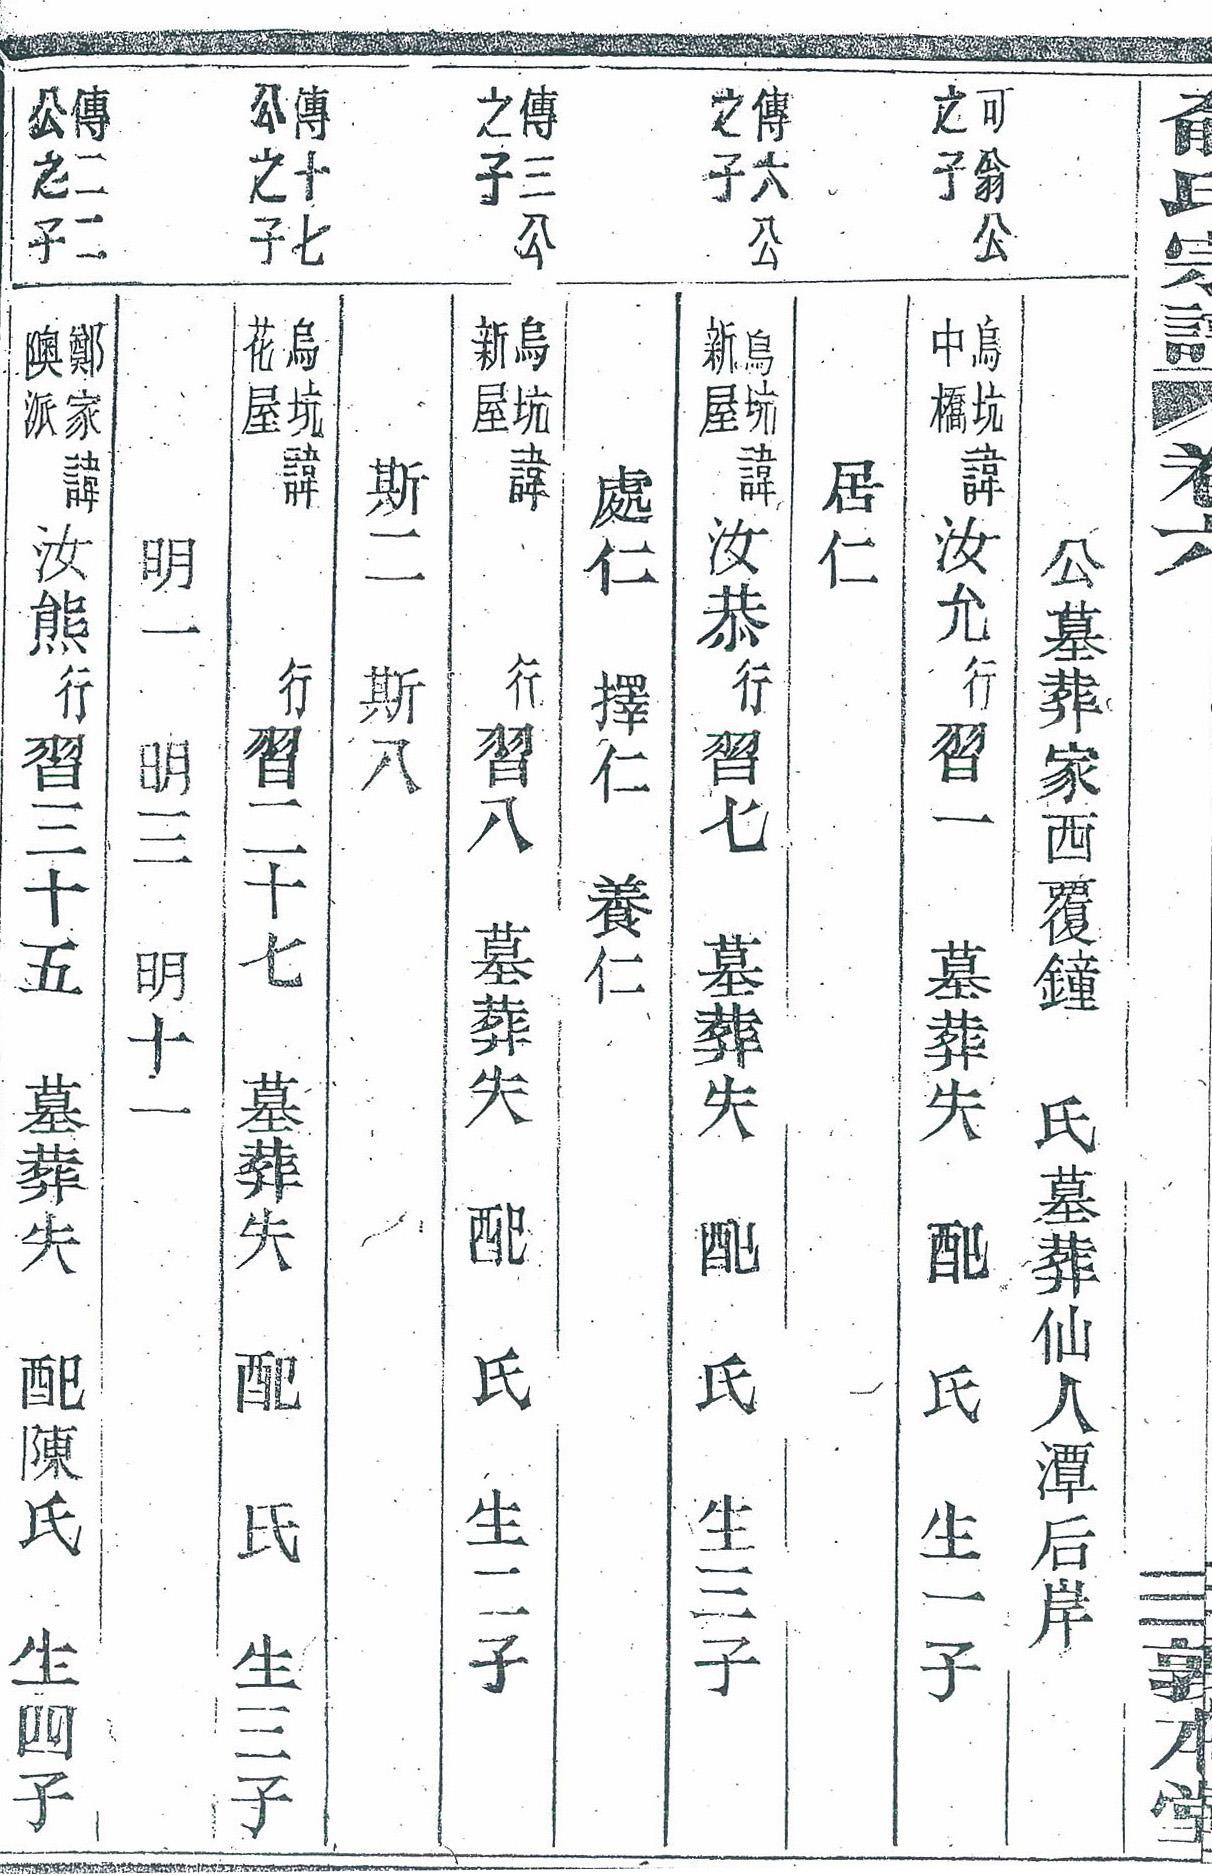 氏宗譜
卷六
三
公墓葬家西覆鐘　氏墓葬仙人潭后岸
可翁公
之子
烏坑
中橋
諱汝允行習一　墓葬失　配　氏　生一子
居仁
傳六公
之子
烏坑
新屋
諱汝恭行習七　墓葬失　配　氏　生三子
處仁　擇仁　養仁
傳三公
之子
烏坑
新屋
諱　行習八　墓葬失　配　氏　生二子
斯二　斯八
傳十七
公之子
烏坑
花屋
諱　行習二十七　墓葬失　配　氏　生三子
明一　明三　明十一
傳二二
公之子
鄭家
隩派
諱汝熊行習三十五　墓葬失　配陳氏　生四子